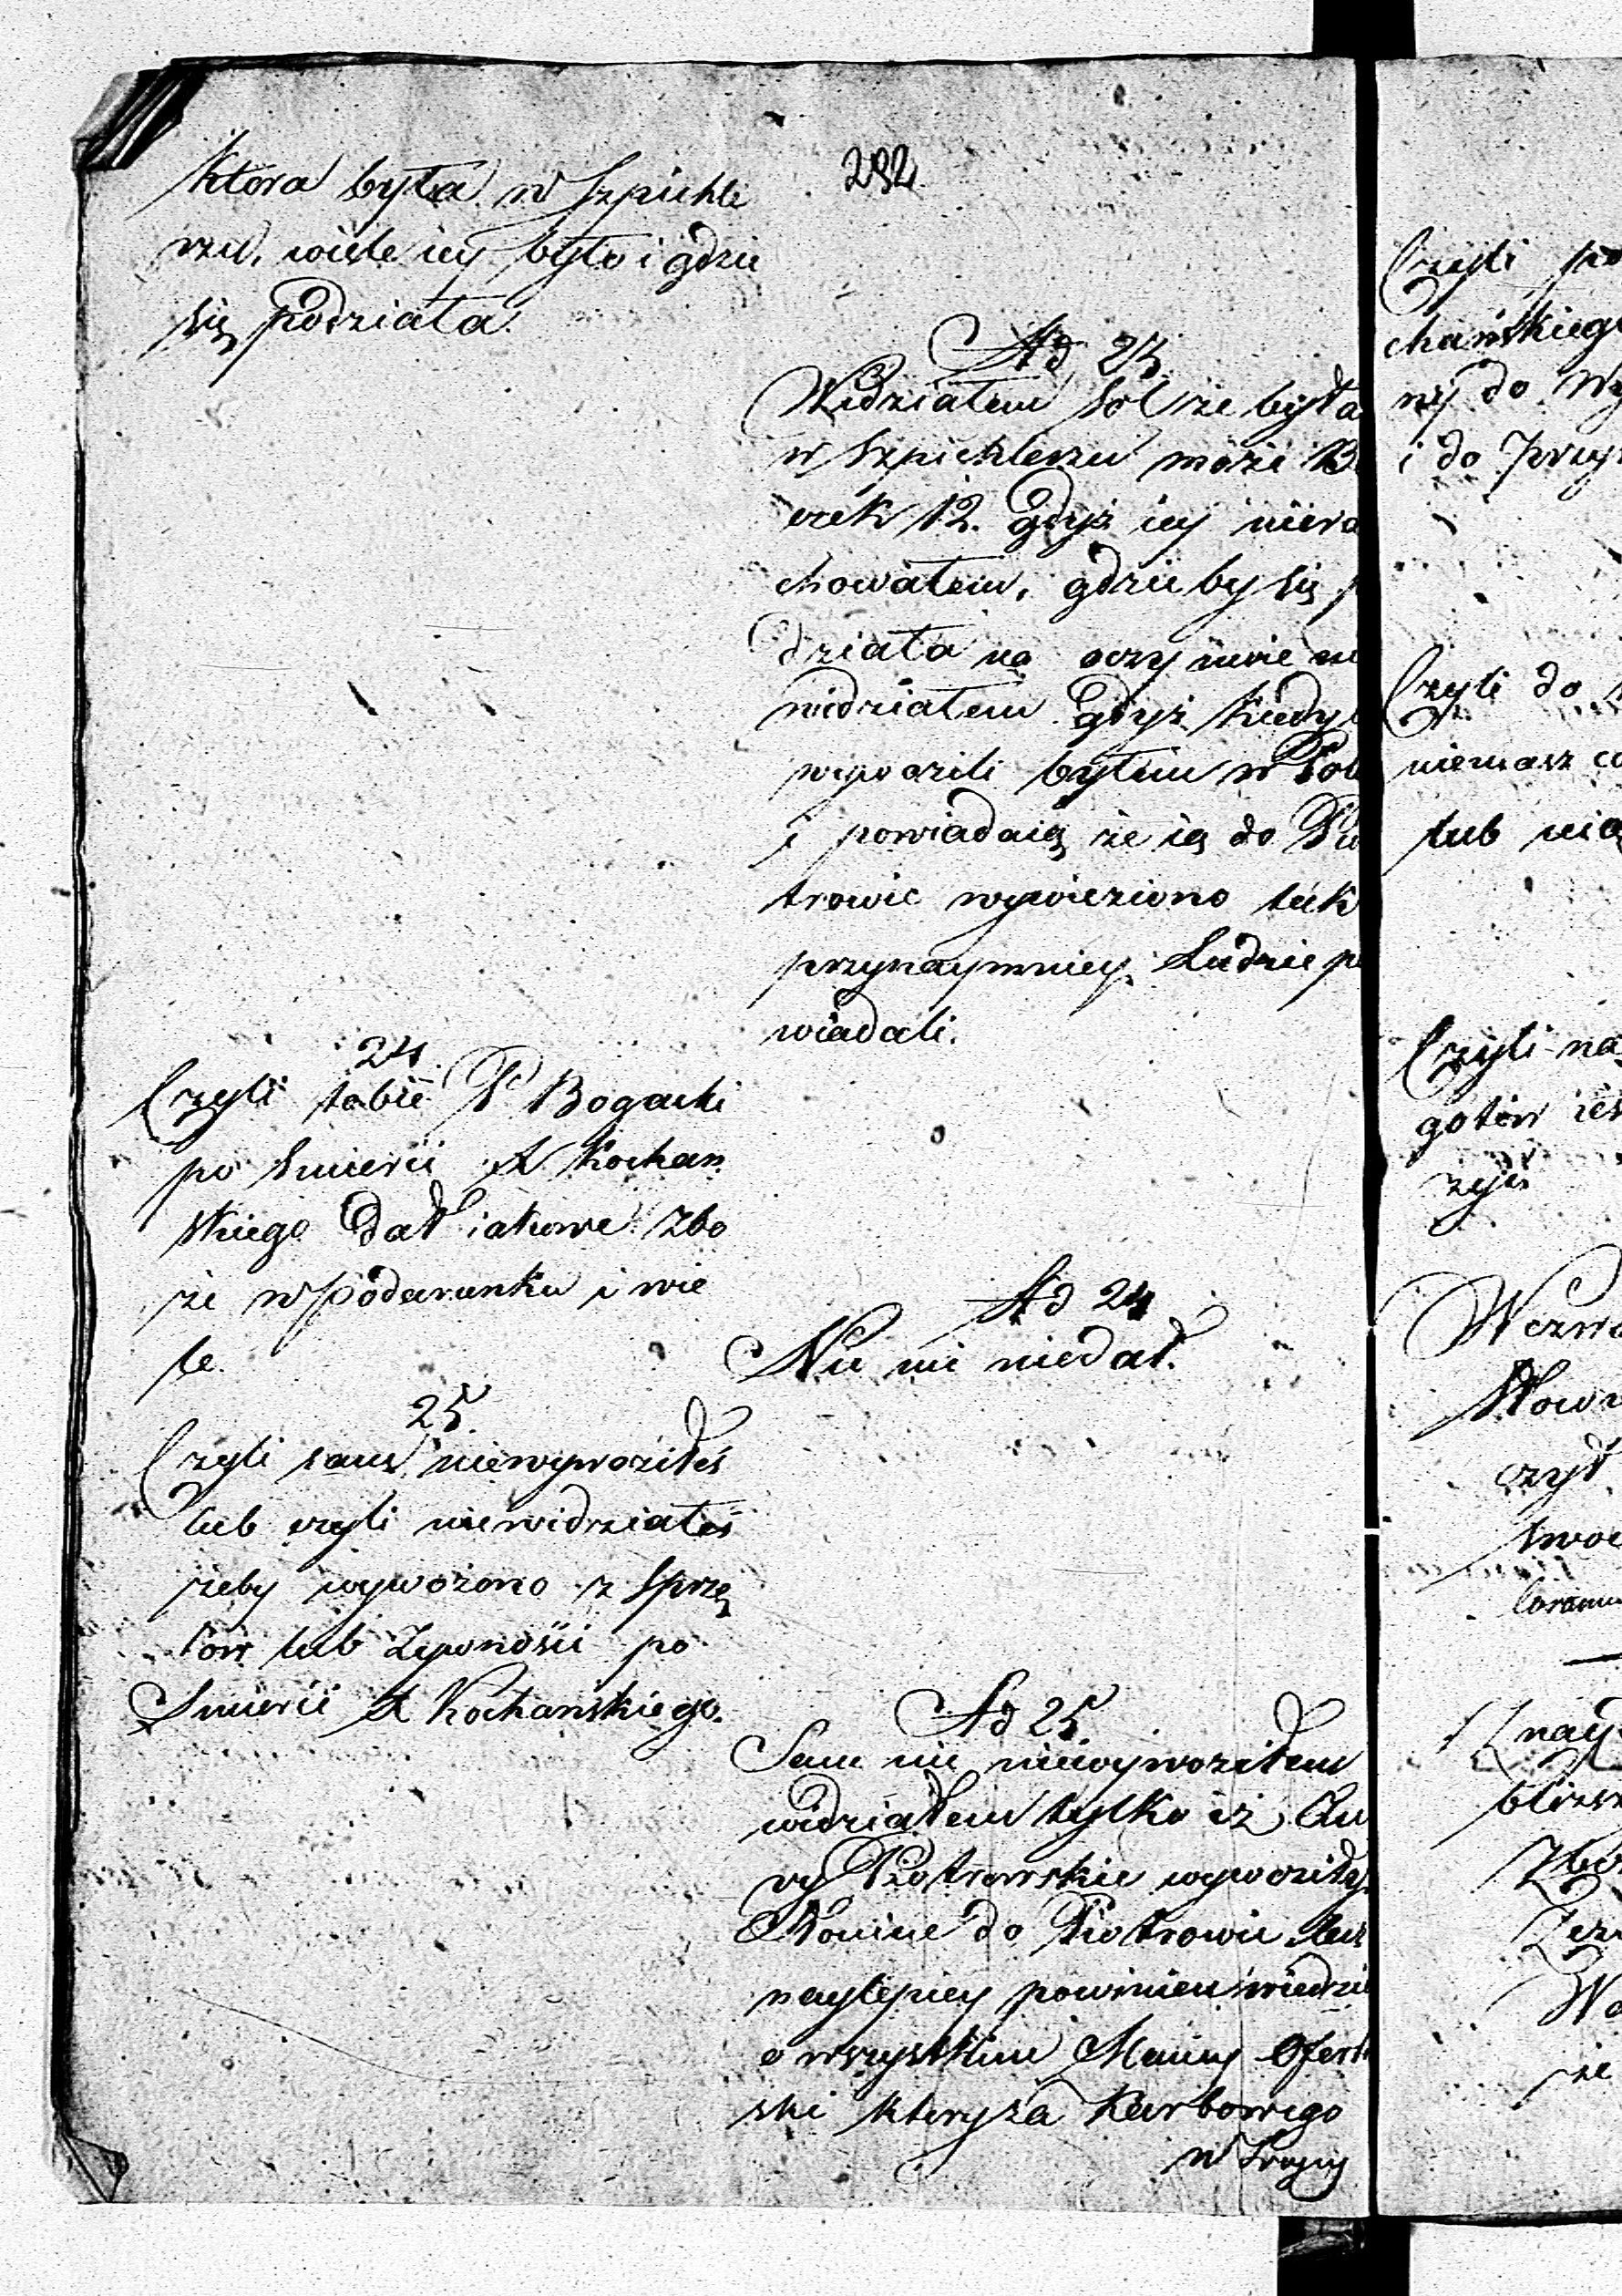 292
która była w Szpichle
rzu, wiele iey było i gdzie
się podziała.
Ad 23
Widziałem Sol że była
w Szpichlerzu może Be
czek 12. Gdyż iey niera
chowałem, gdzie by się p
działa na oczy moie nie
widziałem Gdyż kiedy
wywozili byłem w Polu
i powiadaią że ią do Pio
trowic wywieziono tak
przynaymniey Ludzie po
wiadali.
24
Czyli tobie P Bogacki
po Smierci X Kochan
skiego dał iakowe zbo
że w podarunku i wie
le.
Ad 24
Nic mi niedał.
25
Czyli sam niewywoziłeś
lub czyli niewidziałeś
żeby wywożono z Sprzę
tów lub Żywności po
Smierci X Kochanskiego.
Ad 25
Sam nic niewywoziłem
widziałem tylko iż Fu
ry Piotrowskie wywoziły
Słonine do Piotrowic lecz
naylepiey powinien wiedzieć
o wszystkim
ski który za Karbowego
w Troyny
Czyli po
chańskiego
ny do Wy
i do Przy
Czyli do
niemasz co
lub nią
Czyli na
gotow ies
żyć
Wezwa
Słow
czył
swoie
Coramm
nay
bliższ
Zbo
Zez
Wo
że